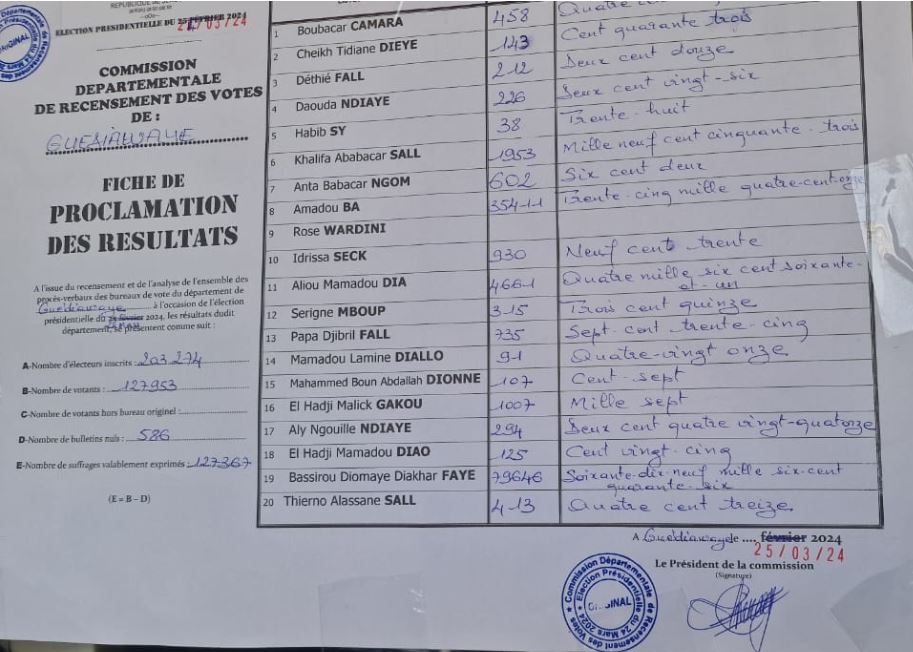 ELECTION PRESIDENTIELLE DU 25 FEVRIER 2024
24/03/24
ORIGINAL
COMMISSION
DEPARTEMENTALE
DE RECENSEMENT DES VOTES
DE :
GUEDIAWAYE
FICHE DE
PROCLAMATION
DES RESULTATS
A l'issue du recensement et de l'analyse de l'ensemble des
procès-verbaux des bureaux de vote du département de
Guédiawaye à l'occasion de l'élection
présidentielle du février 2024, les résultats dudit
département, se présentent comme suit :
A-Nombre d'électeurs inscrits : 203 274
B-Nombre de votants : 127953
C-Nombre de votants hors bureau originel :
D-Nombre de bulletins nuls : 586
E-Nombre de suffrages valablement exprimés : 127367
(E = B – D)
1 Boubacar CAMARA 458 Quatre
2 Cheikh Tidiane DIEYE 143 Cent quarante trois
3 Déthié FALL 212 Deux cent douze
4 Daouda NDIAYE 226 Deux cent vingt-six
5 Habib SY 38 Trente-huit
6 Khalifa Ababacar SALL 1953 Mille neuf cent cinquante-trois
7 Anta Babacar NGOM 602 Six cent deux
8 Amadou BA 35411 Trente-cinq mille quatre-cent-onze
9 Rose WARDINI
10 Idrissa SECK 930 Neuf cent trente
11 Aliou Mamadou DIA 4661 Quatre mille six cent soixante-
et-un
12 Serigne MBOUP 315 Trois cent quinze
13 Papa Djibril FALL 735 Sept-cent trente-cinq
14 Mamadou Lamine DIALLO 91 Quatre-vingt onze
15 Mahammed Boun Abdallah DIONNE 107 Cent-sept
16 El Hadji Malick GAKOU 1007 Mille sept
17 Aly Ngouille NDIAYE 294 Deux cent quatre vingt-quatorze
18 El Hadji Mamadou DIAO 125 Cent vingt-cinq
19 Bassirou Diomaye Diakhar FAYE 79646 Soixante-dix-neuf mille six-cent
quarante-six
20 Thierno Alassane SALL 413 Quatre cent treize
A Guédiawaye le .... février 2024
25/03/24
Le Président de la commission
(Signature)
Commission Départementale de Recensement des Votes
Election Présidentielle du 24 Mars 2024
ORIGINAL